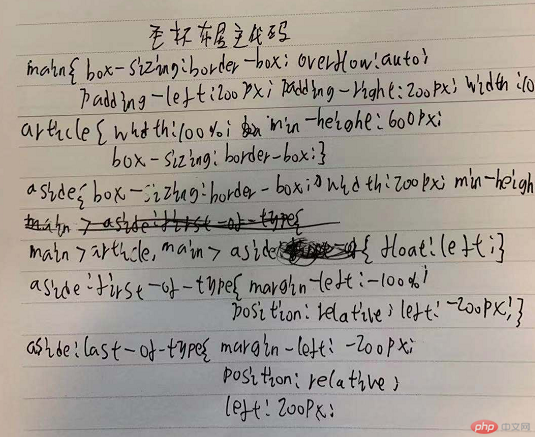 圣杯布局主代码
main{ box-sizing:border-box; overflow:auto;
padding-left:200px; padding-right:200px; width:10
article{ width:100%; min-height:600px;
box-sizing: border-box;}
aside{ box-sizing:border-box; width:200px; min-heigh
main > aside:first-of-type{
main > article, main > aside { float:left;}
aside:first-of-type{ margin-left:-100%;
position: relative; left: -200px;}
aside:last-of-type{ margin-left: -200px;
position: relative;
left: 200px;
php 中文网